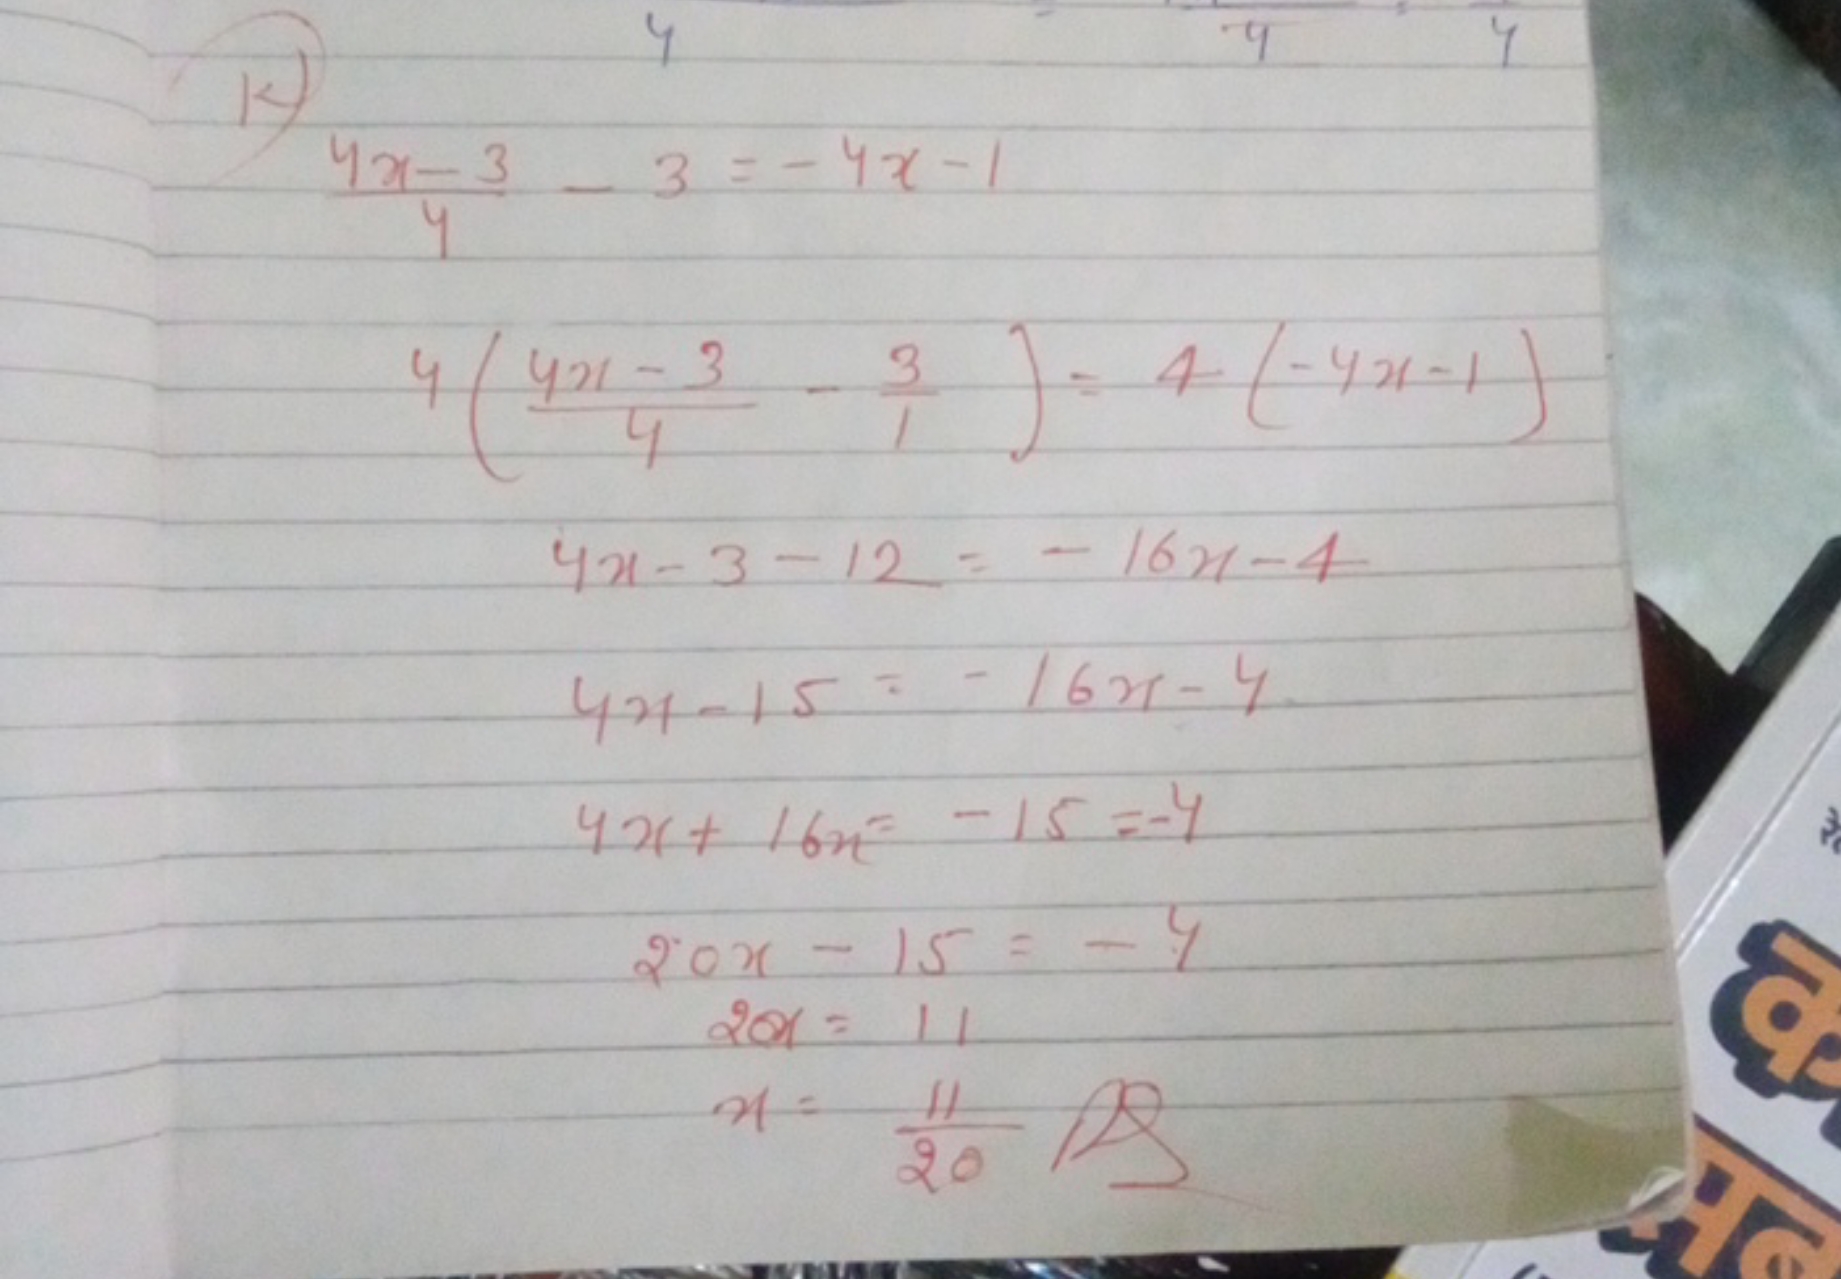 4 = 4 = 4
K)
4x-3/4 - 3 = -4x-1
4(4x-3/4 - 3/1) = 4(-4x-1)
4x-3-12 = -16x-4
4x-15 = -16x-4
4x+16x= -15 =-4
20x - 15 = - 4
20x = 11
x = 11/20